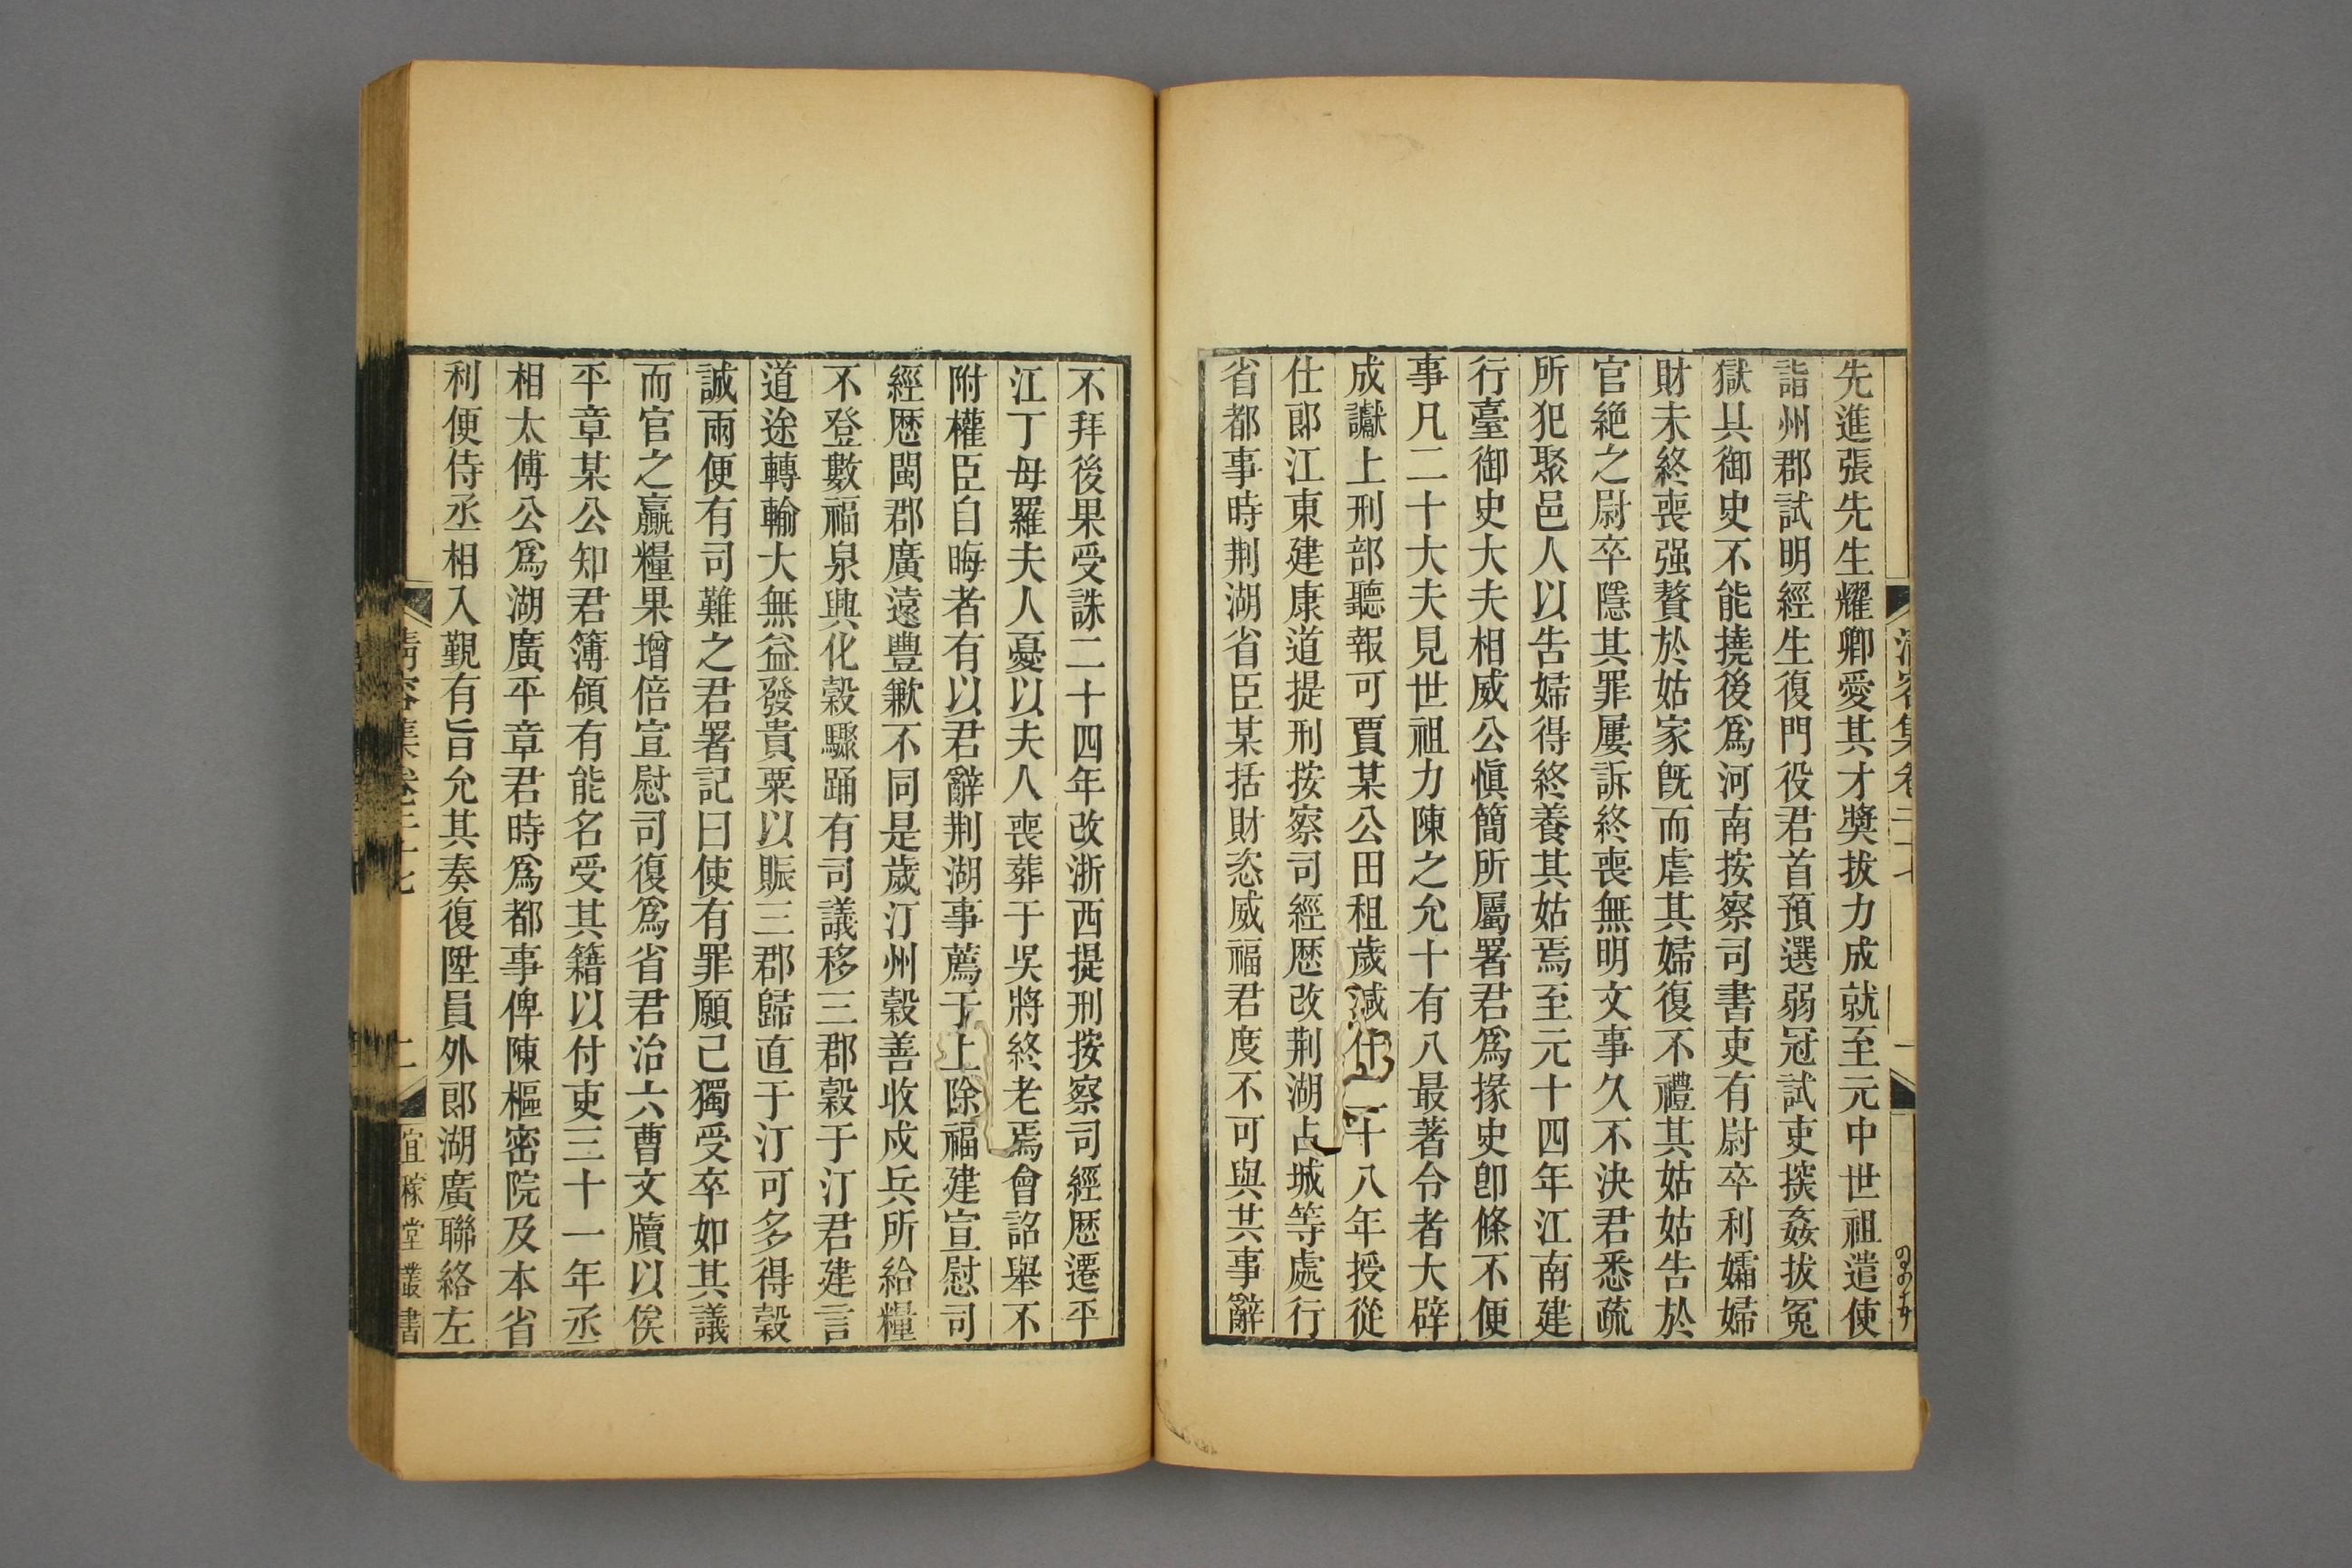 先進張先生耀卿愛其才獎拔力成就至元中世祖遣使
詣州郡試明經生復門役君首預選弱冠試吏擿姦拔冤
獄具御史不能撓後爲河南按察司書吏有尉卒利孀婦
財未終喪强贅於姑家旣而虐其婦復不禮其姑姑告於
官絕之尉卒隱其罪屢訴終喪無明文事久不決君悉疏
所犯聚邑人以告婦得終養其姑焉至元十四年江南建
行臺御史大夫相威公愼簡所屬署君爲掾史卽條不便
事凡二十大夫見世祖力陳之允十有八最著令者大辟
成讞上刑部聽報可賈某公田租歲減什二十八年授從
仕郞江東建康道提刑按察司經歷改荆湖占城等處行
省都事時荆湖省臣某括財恣威福君度不可與共事辭
不拜後果受誅二十四年改浙西提刑按察司經歷遷平
江丁母羅夫人憂以夫人喪葬于吳將終老焉會詔舉不
附權臣自晦者有以君辭荆湖事薦于上除福建宣慰司
經歷閩郡廣遠豐歉不同是歲汀州穀善收戍兵所給糧
不登數福泉興化穀驟踊有司議移三郡穀于汀君建言
道途轉輸大無益發貴粟以賑三郡歸直于汀可多得穀
誠兩便有司難之君署記曰使有罪願己獨受卒如其議
而官之贏糧果增倍宣慰司復爲省君治六曹文牘以俟
平章某公知君簿領有能名受其籍以付吏三十一年丞
相太傅公爲湖廣平章君時爲都事俾陳樞密院及本省
利便侍丞相入覲有旨允其奏復陞員外郞湖廣聯絡左
清容集卷二十七
二
宜稼堂叢書